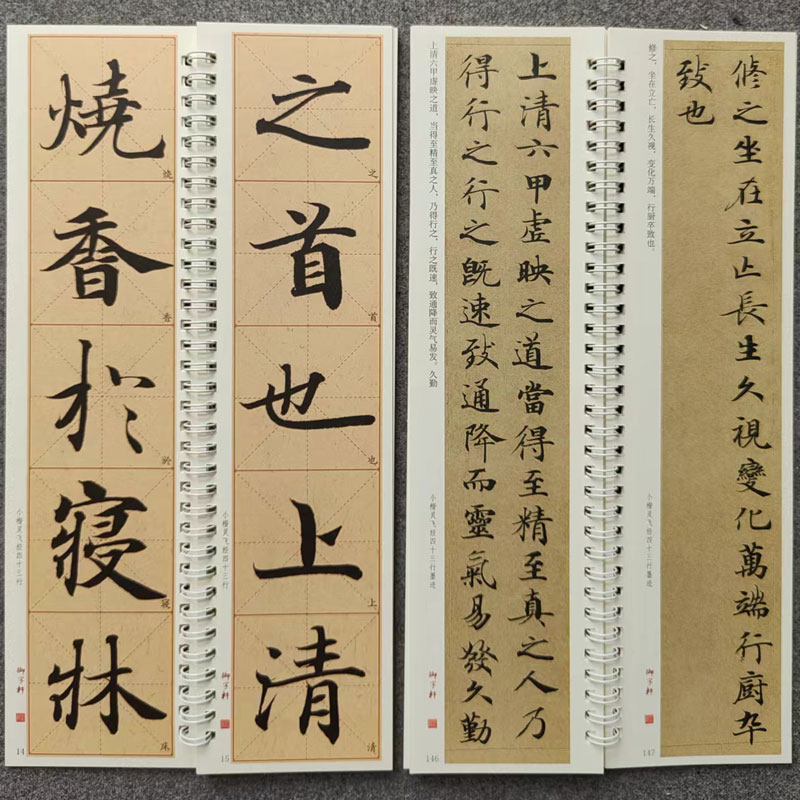 燒香於寢牀
烧
香
於
寝
床
小楷灵飞经四十三行
14
之首也上清
之
首
也
上
清
小楷灵飞经四十三行
15
上清六甲虛映之道當得至精至真之人乃
得行之行之既速致通降而靈氣易發久勤
上清六甲虚映之道，当得至精至真之人，乃得行之，行之既速，致通降而灵气易发，久勤
小楷灵飞经四十三行墨迹
146
脩之坐在立亡長生久視變化萬端行廚卒
致也
修之，坐在立亡，长生久视，变化万端，行厨卒致也。
小楷灵飞经四十三行墨迹
147